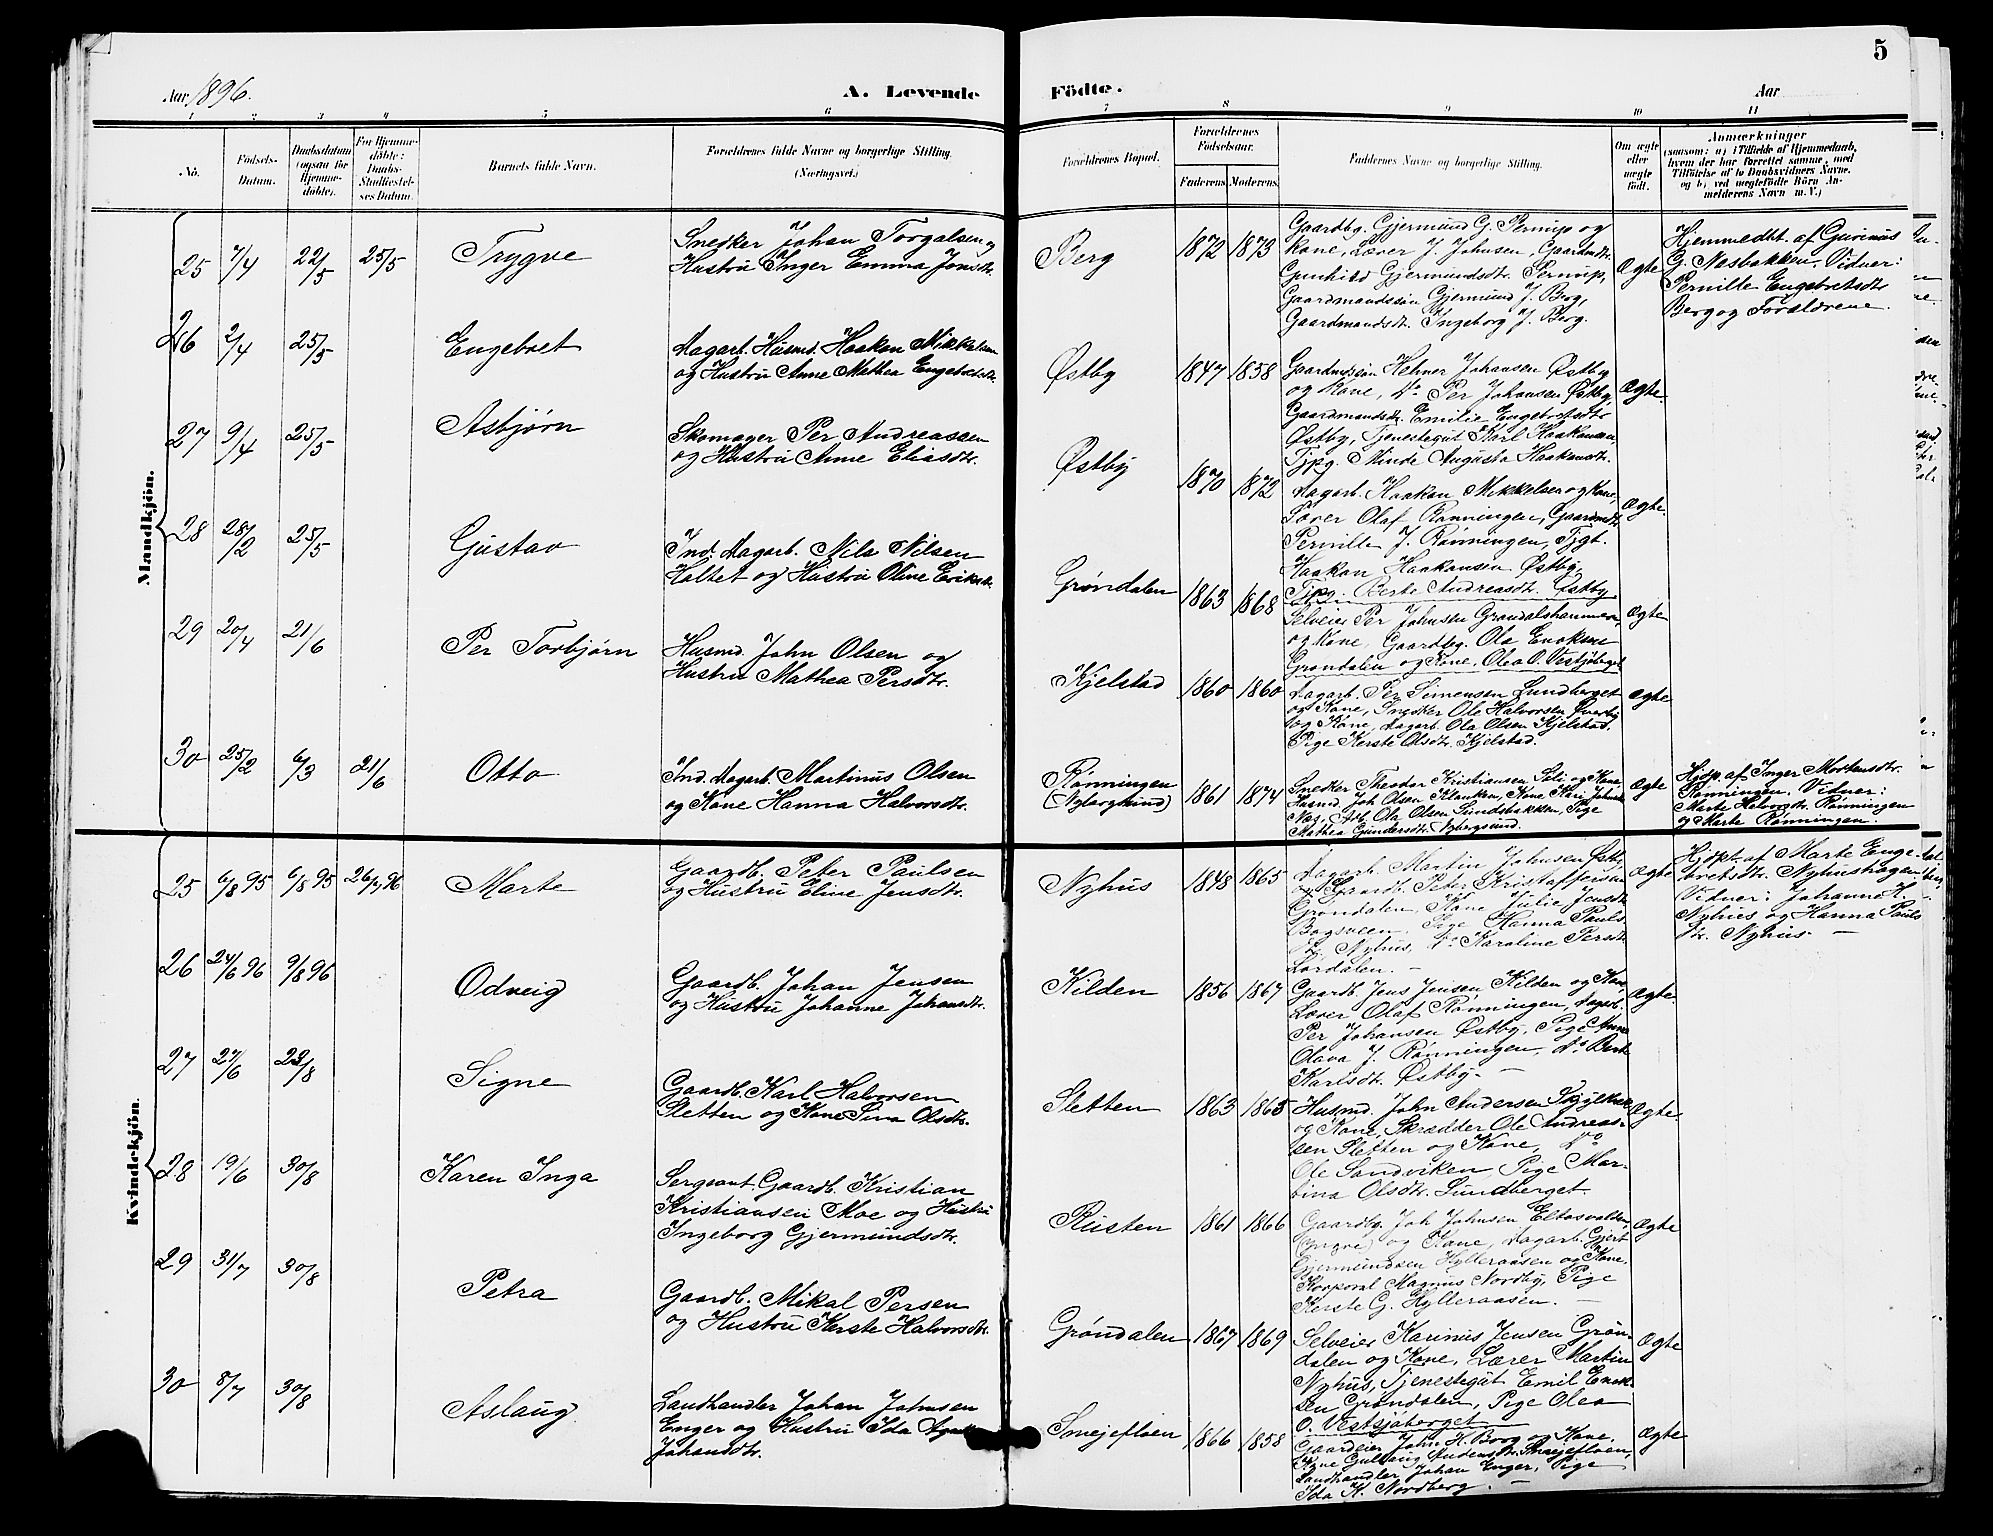 5
Aar 1896.
A. Levende
Födte.
Aar
1 2 3 4 5 6 7 8 9 10 11
No.
Födsels-
Datum.
Daabsdatum
(ogsaa for
Hjemme-
döbte).
For Hjemme-
döbte:
Daabs-
Stadfæstel-
ses Datum.
Barnets fulde Navn.
Forældrenes fulde Navne og borgerlige Stilling.
(Næringsvei.)
Forældrenes Bopæl.
Forældrenes
Födselsaar.
Faderens. Moderens.
Faddernes Navne og borgerlige Stilling.
Om ægte
eller
uægte
födt.
Anmærkninger
(saasom: a) i Tilfælde af Hjemmedaab,
hvem der har forrettet samme, med
Tilföielse af to Daabsvidners Navne.
og b) ved uægtefödte Börn An-
melderens Navn m. V.)
Mandkjön.
25 7/4 22/5 25/5 Trygve
Snedker Johan Torgalsen og
Hustru Inger Emma Jonsdtr.
Berg 1872 1873
Gaardbg. Gjermund G. Pernup og
Kone, Lærer J. Johnsen, Gaardmdtr.
Gunhild Gjermundsdtr. Pernup,
Gaardmandssøn Gjermund J. Berg,
Gaardmandsdtr. Ingeborg J. Berg.
Ægte
Hjemmedbt. af Gurinus
G. Næsbakken. Vidner:
Pernille Engebretsdtr
Berg og Forældrene.
26 2/4 25/5 Engebret
Dagarb. Husmd. Haakon Mikkelsen
og Hustru Anne Mathea Engebretsdtr.
Østby 1847 1858
Gaardmssøn Helmer Johansen Østby
og Kone, Do Per Johansen Østby,
Gaardmandsdtr. Emilie Engebretsdtr
Østby, Tjenestegut Karl Haakonsen,
Tjpg. Minde Augusta Haakonsdtr.
Ægte.
27 9/4 25/5 Asbjørn
Skomager Per Andreassen
og Hustru Anne Eliasdtr.
Østby 1870 1872
Dagarb. Haakon Mikkelsen og Kone,
Lærer Olaf Rønningen, Gaardmdtr
Pernille J. Rønningen, Tjgt.
Haakon Haakonsen Østby,
Tjpg. Berte Andreasdtr. Østby
Ægte.
28 28/2 25/5 Gustav
Ind. Dagarb. Nils Nilsen
Holtet og Hustru Oline Eriksdtr.
Grøndalen 1863 1868
Selveier Per Johnsen Grøndalshammeren,
og Kone, Gaardbg. Ola Enoksen
Grøndalen og Kone, Olea O. Vestsjøberget
Ægte
29 20/4 21/6 Per Torbjørn
Husmd. John Olsen og
Hustru Mathea Persdtr.
Kjelstad 1860 1860
Dagarb. Per Simensen Lundberget
og Kone, Snedker Ole Halvorsen Øverby
og Kone, Dagarb. Ola Olsen Kjelstad,
Pige Kerste Olsdtr. Kjelstad.
Ægte
30 25/2 6/3 21/6 Otto
Ind. Dagarb. Martinus Olsen
og Kone Hanna Halvorsdtr.
Rønningen
(Nybergsund) 1861 1874
Snedker Theodor Kristiansen Sæli og Kone
Husmd. Joh. Olsen Klanken, Kone Kari Johnsdtr
Næs, Arb. Ola Olsen Sundsbakken, Pige
Mathea Gundersdtr. Nybergsund.
Ægte
Hjdp. af Inger Mortensdtr.
Rønningen. Vidner:
Marte Halvorsdtr. Rønningen
og Marte Rønningen.
Kvindekjön.
25 6/8 95 6/8 95 26/7 96 Marte
Gaardb. Peter Paulsen
og Hustru Eline Jensdtr.
Nyhus 1848 1865
Dagarb. Martin Johnsen Østby
og Gaardb. Peter Kristoffersen
Grøndalen, Kone Julie Jensdtr
Bagsveen, Pige Hanna Pauls
dtr. Nyhus, Do Karoline Persdtr
Lørdalen. –
Ægte
Hjdpt. af Marte Enge-
bretsdtr. Nyhushagen
Vidner: Johanne H.
Nyhus og Hanna Pauls
dtr. Nyhus. –
26 24/6 96 9/8 96 Odveig
Gaardb. Johan Jensen
og Hustru Johanne Johansdtr.
Kilden 1856 1867
Gaardb. Jens Jensen Kilden og Kone
Lærer Olaf Rønningen, Dagarb.
Per Johansen Østby, Pige Anne
Olava J. Rønningen, do Berte
Karlsdtr. Østby. –
Ægte.
27 27/6 23/8 Signe
Gaardb. Karl Halvorsen
Sletten og Kone Sina Olsdtr.
Sletten 1863 1865
Husmd. John Andersen
og Kone, Skrædder Ole Andreas-
sen Sletten og Kone, Do
Ole Sandviken, Pige Mar-
tina Olsdtr. Lundberget.
Ægte.
28 19/6 30/8 Karen Inga
Sergeant Gaardb. Kristian
Kristiansen Moe og Hustru
Ingeborg Gjermundsdtr.
Rusten 1861 1866
Gaardbg. Joh Johnsen Eltosvolden,
(yngre) og Kone, Dagarb. Gjert
Gjermundsen Hylleraasen og Kone,
Korporal Magnus Nordby, Pige
Kerste G. Hylleraasen. –
Ægte
29 31/7 30/8 Petra
Gaardb. Mikal Persen
og Hustru Kerste Halvorsdtr.
Grøndalen 1867 1869
Selveier Karinus Jensen Grøn-
dalen og Kone, Lærer Martin
Nyhus, Tjenestegut Emil Enok-
sen Grøndalen, Pige Olea
O. Vestsjøberget
Ægte
30 8/7 30/8 Aslaug
Landhandler Johan Johnsen
Enger og Hustru Ida Agathe
Johansdtr.
Smejefloen 1866 1858
Gaardeier John H. Borg og Kone,
Kone Gullaug Andersdtr. Smejefloen,
Landhandler Johan Enger, Pige
Ida K. Nordberg. –
Ægte